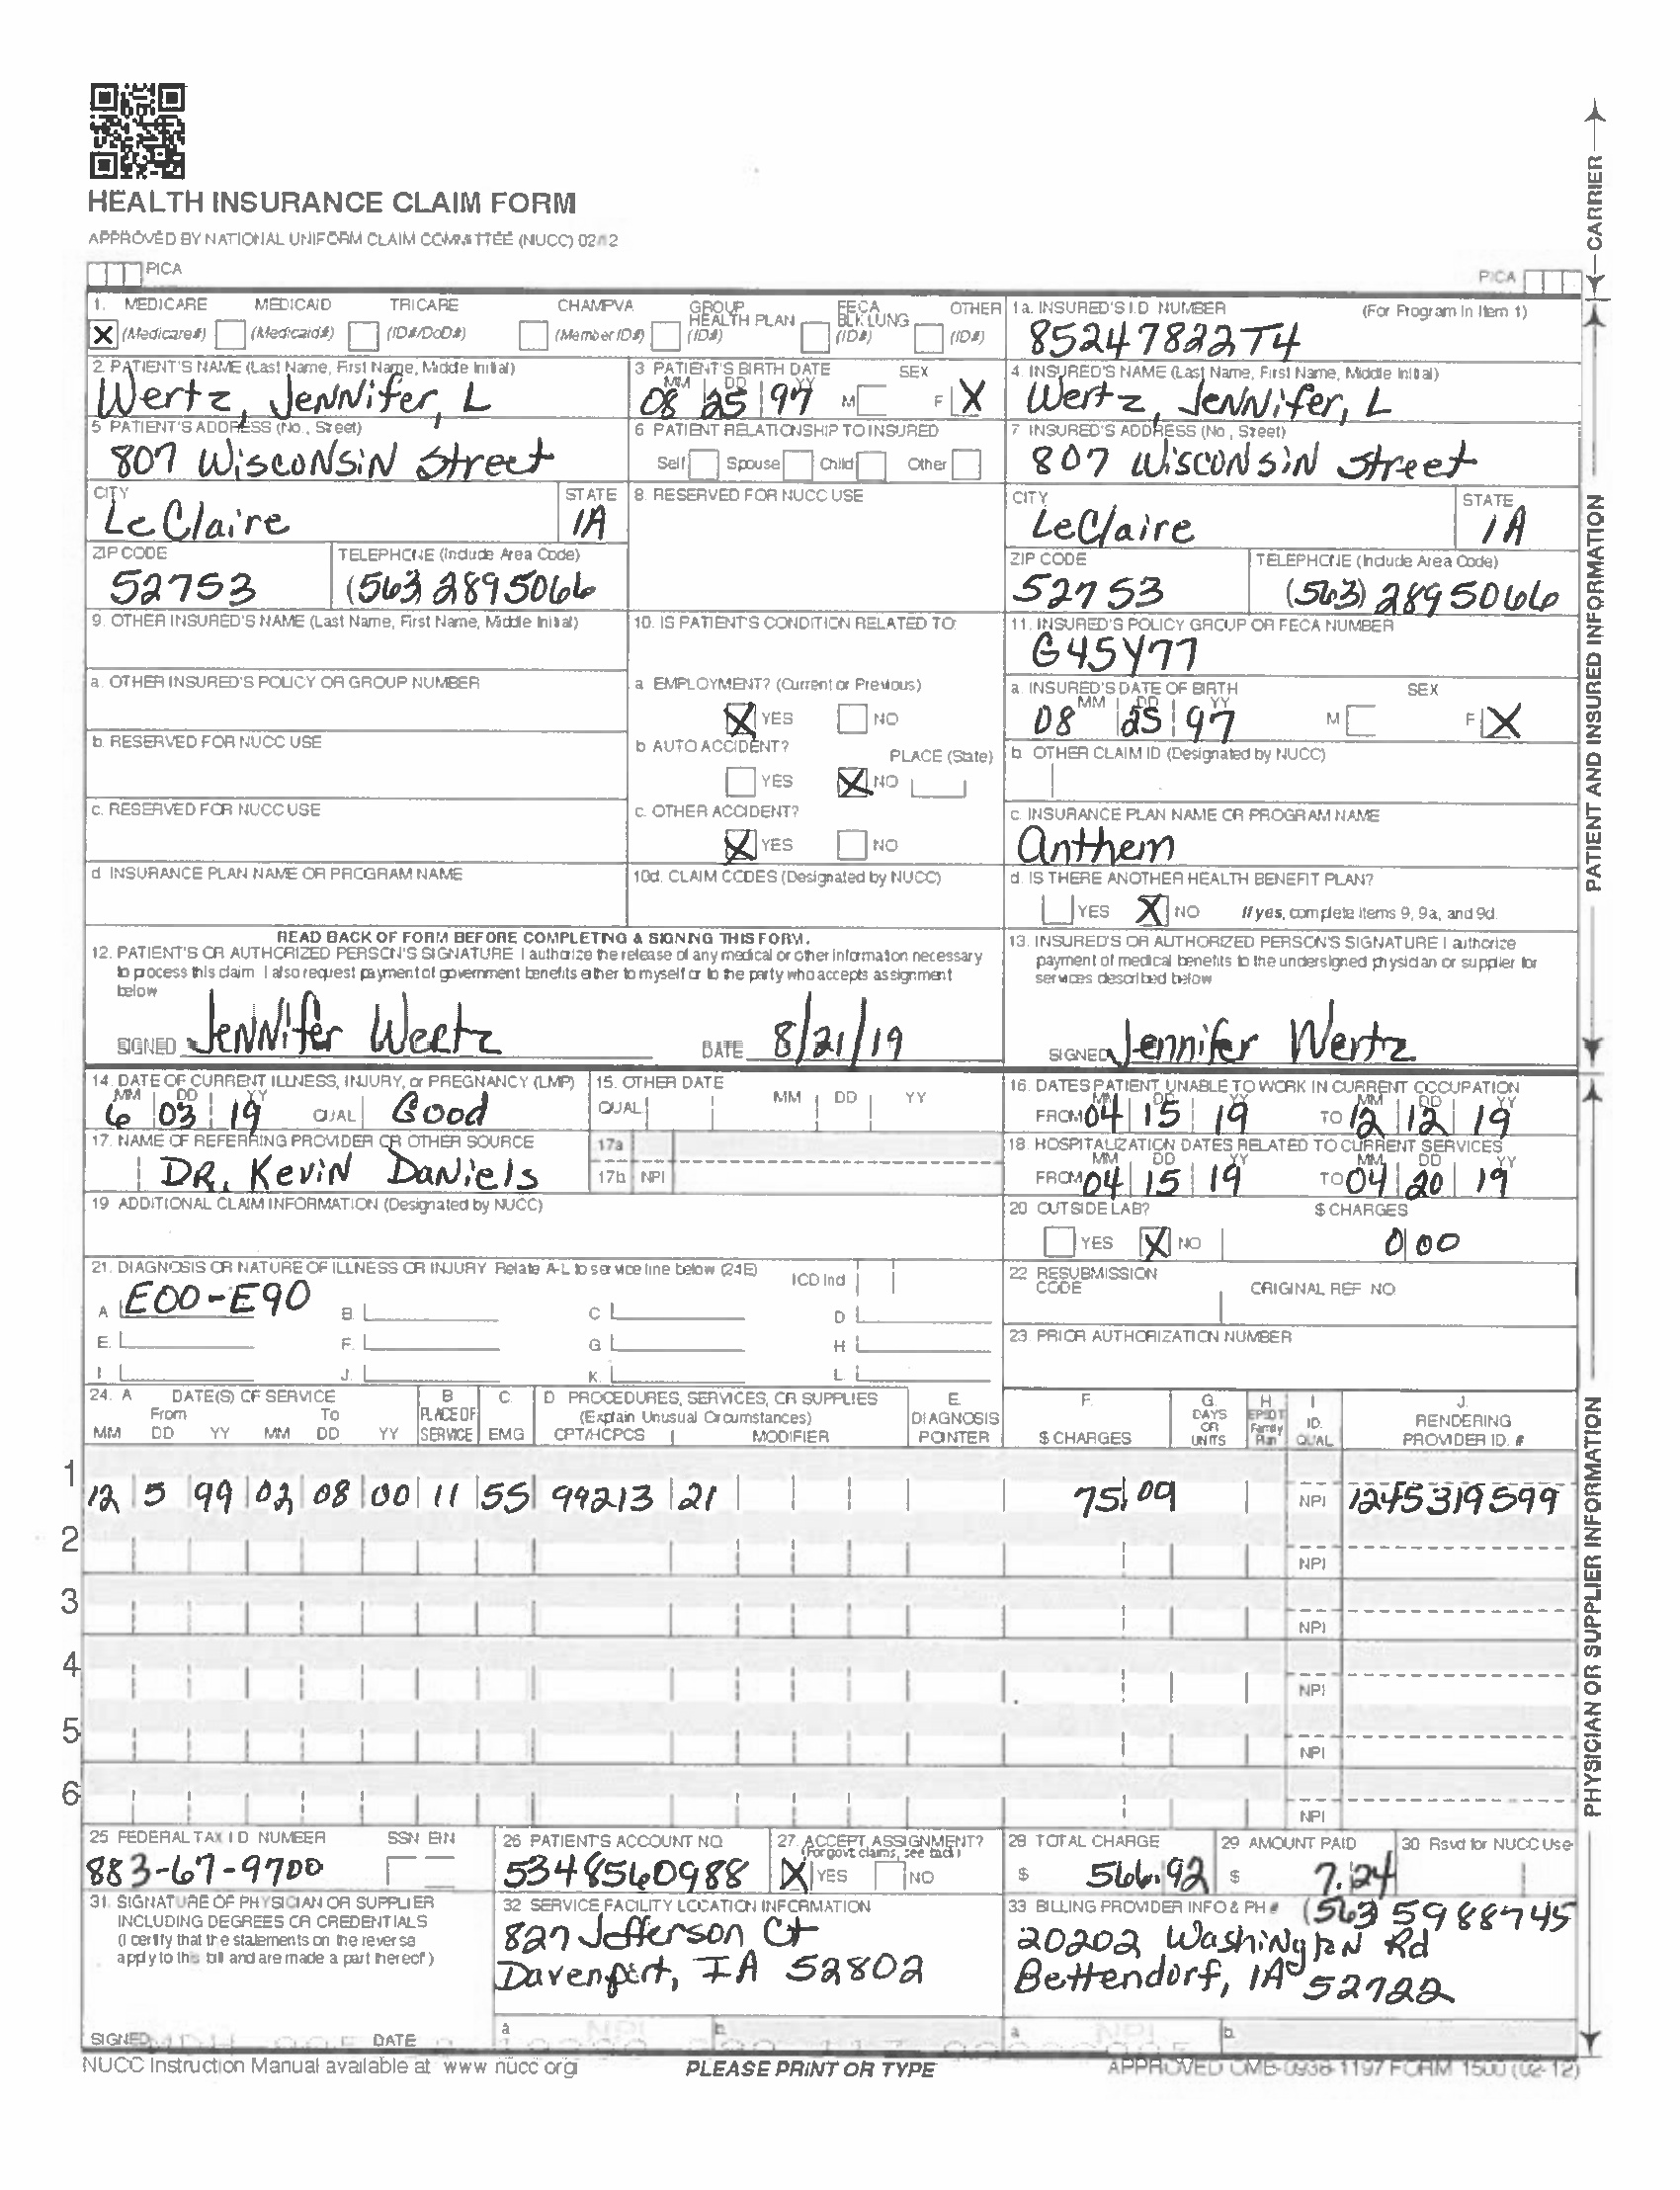 HEALTH INSURANCE CLAIM FORM
APPROVED BY NATIONAL UNIFORM CLAIM COMMITTEE (NUCC) 02/12
PICA
PICA
CARRIER
1. MEDICARE MEDICAID TRICARE CHAMPVA GROUP HEALTH PLAN FECA BLK LUNG OTHER
X (Medicare#) (Medicaid#) (ID#/DoD#) (Member ID#) (ID#) (ID#) (ID#)
1a. INSURED'S I.D. NUMBER (For Program in Item 1)
85247822T4
2. PATIENT'S NAME (Last Name, First Name, Middle Initial)
Wertz, Jennifer, L
3 PATIENT'S BIRTH DATE SEX
MM DD YY
08 25 97 M F X
4. INSURED'S NAME (Last Name, First Name, Middle Initial)
Wertz, Jennifer, L
5 PATIENT'S ADDRESS (No., Street)
807 Wisconsin Street
6 PATIENT RELATIONSHIP TO INSURED
Self Spouse Child Other
7 INSURED'S ADDRESS (No., Street)
807 Wisconsin Street
CITY STATE
LeClaire IA
8. RESERVED FOR NUCC USE
CITY STATE
LeClaire IA
ZIP CODE TELEPHONE (Include Area Code)
52753 (563 2895066
ZIP CODE TELEPHONE (Include Area Code)
52753 (563) 2895066
9. OTHER INSURED'S NAME (Last Name, First Name, Middle Initial)
10. IS PATIENT'S CONDITION RELATED TO:
11. INSURED'S POLICY GROUP OR FECA NUMBER
G45Y77
a. OTHER INSURED'S POLICY OR GROUP NUMBER
a. EMPLOYMENT? (Current or Previous)
X YES NO
a. INSURED'S DATE OF BIRTH SEX
MM DD YY
08 25 97 M F X
b. RESERVED FOR NUCC USE
b. AUTO ACCIDENT? PLACE (State)
YES X NO
b. OTHER CLAIM ID (Designated by NUCC)
c. RESERVED FOR NUCC USE
c. OTHER ACCIDENT?
X YES NO
c. INSURANCE PLAN NAME OR PROGRAM NAME
Anthem
d. INSURANCE PLAN NAME OR PROGRAM NAME
10d. CLAIM CODES (Designated by NUCC)
d. IS THERE ANOTHER HEALTH BENEFIT PLAN?
YES X NO If yes, complete items 9, 9a, and 9d.
PATIENT AND INSURED INFORMATION
READ BACK OF FORM BEFORE COMPLETING & SIGNING THIS FORM.
12. PATIENT'S OR AUTHORIZED PERSON'S SIGNATURE I authorize the release of any medical or other information necessary
to process this claim. I also request payment of government benefits either to myself or to the party who accepts assignment
below
SIGNED Jennifer Wertz DATE 8/21/19
13. INSURED'S OR AUTHORIZED PERSON'S SIGNATURE I authorize
payment of medical benefits to the undersigned physician or supplier for
services described below
SIGNED Jennifer Wertz
14. DATE OF CURRENT ILLNESS, INJURY, or PREGNANCY (LMP)
MM DD YY
6 03 19 QUAL Good
15. OTHER DATE
QUAL MM DD YY
16. DATES PATIENT UNABLE TO WORK IN CURRENT OCCUPATION
MM DD YY MM DD YY
FROM 04 15 19 TO 12 12 19
17. NAME OF REFERRING PROVIDER OR OTHER SOURCE
DR. Kevin Daniels
17a
17b NPI
18. HOSPITALIZATION DATES RELATED TO CURRENT SERVICES
MM DD YY MM DD YY
FROM 04 15 19 TO 04 20 19
19 ADDITIONAL CLAIM INFORMATION (Designated by NUCC)
20 OUTSIDE LAB? $ CHARGES
YES X NO 0 00
21. DIAGNOSIS OR NATURE OF ILLNESS OR INJURY Relate A-L to service line below (24E) ICD Ind
A E00-E90 B. C D
E. F. G H
I. J. K. L.
22 RESUBMISSION CODE ORIGINAL REF NO
23 PRIOR AUTHORIZATION NUMBER
24. A DATE(S) OF SERVICE B PLACE OF SERVICE C. EMG D PROCEDURES, SERVICES, OR SUPPLIES E. DIAGNOSIS POINTER F. $ CHARGES G. DAYS OR UNITS H EPSDT Family Plan I ID. QUAL J. RENDERING PROVIDER ID. #
From To (Explain Unusual Circumstances)
MM DD YY MM DD YY CPT/HCPCS MODIFIER
1
12 5 99 02 08 00 11 55 99213 21 75.09 NPI 1245319599
2
NPI
3
NPI
4
NPI
5
NPI
6
NPI
PHYSICIAN OR SUPPLIER INFORMATION
25 FEDERAL TAX I D NUMBER SSN EIN
883-67-9700
26 PATIENT'S ACCOUNT NO
5348560988
27. ACCEPT ASSIGNMENT?
(For govt claims, see back)
X YES NO
28 TOTAL CHARGE
$ 566.92
29 AMOUNT PAID
$ 7.24
30 Rsvd for NUCC Use
31. SIGNATURE OF PHYSICIAN OR SUPPLIER
INCLUDING DEGREES OR CREDENTIALS
(I certify that the statements on the reverse
apply to this bill and are made a part thereof)
SIGNED DATE
32 SERVICE FACILITY LOCATION INFORMATION
827 Jefferson Ct
Davenport, IA 52802
a. NPI b.
33 BILLING PROVIDER INFO & PH # (563 5988745
20202 Washington Rd
Bettendorf, IA 52722
a. NPI b.
NUCC Instruction Manual available at www nucc org
PLEASE PRINT OR TYPE
APPROVED OMB-0938-1197 FORM 1500 (02-12)